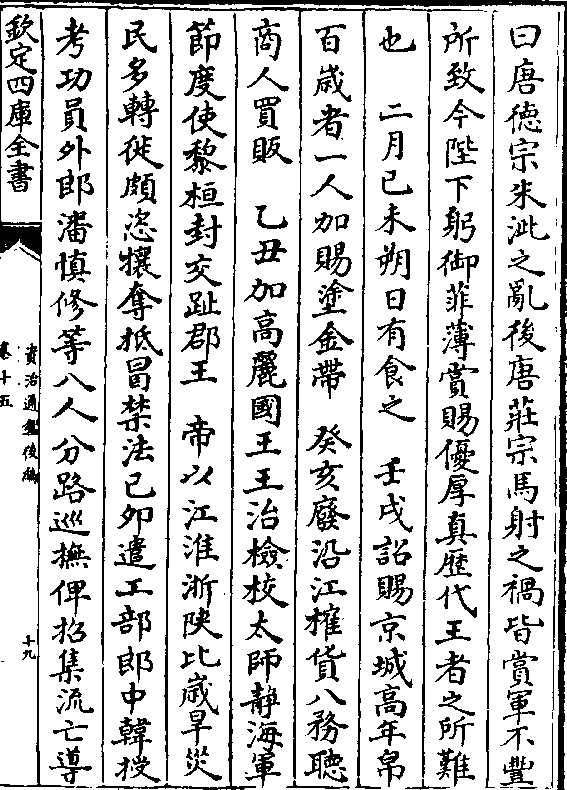 曰唐德宗朱泚之亂後唐莊宗馬射之禍皆賞軍不豐
所致今陛下躬御菲薄賞賜優厚真歴代王者之所難
也　二月己未朔日有食之　壬戌詔賜京城高年帛
百歳者一人加賜塗金帶　癸亥廢沿江榷貨八務聽
商人買販　乙丑加高麗國王王治檢校太師靜海軍
節度使黎桓封交趾郡王　帝以江淮浙陝比歳旱災
民多轉徙頗恣攘奪抵冒禁法己夘遣工部郎中韓授
考功員外郎潘慎修等八人分路巡撫俾招集流亡導
欽定四庫全書
資治通鑑後編
卷十五
十九